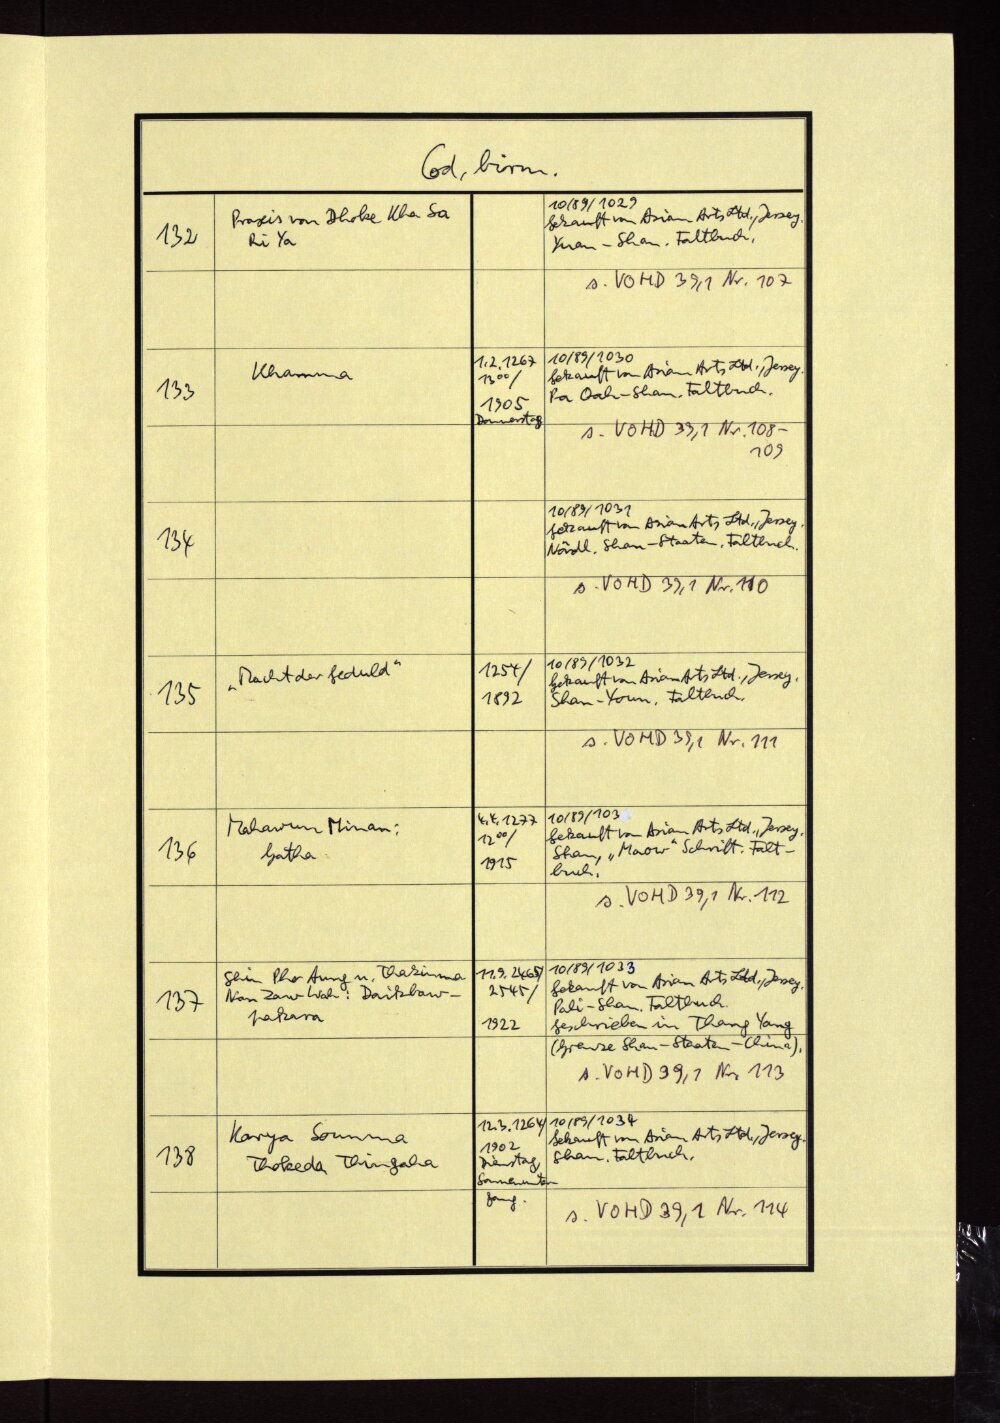 Cod. birm.
132
Praxis von Dhoke Kha Sa
Ri Ya
10/89/1029
gekauft von Asian Arts Ltd., Jersey.
Yuan-Shan. Faltbuch.
s. VOHD 39,1 Nr. 107
133
Khamma
1.2.1267
13⁰⁰/
1905
Donnerstag
10/89/1030
gekauft von Asian Arts Ltd., Jersey.
Pa Oah-Shan. Faltbuch.
s. VOHD 39,1 Nr. 108-
109
134
10/89/1031
gekauft von Asian Arts Ltd., Jersey.
Nördl. Shan-Staaten. Faltbuch.
s. VOHD 39,1 Nr. 110
135
„Macht der Geduld“
1254/
1892
10/89/1032
gekauft von Asian Arts Ltd., Jersey.
Shan-Youn. Faltbuch.
s. VOHD 39,1 Nr. 111
136
Mahawun Minan:
Gatha
4.4.1277
12⁰⁰/
1915
10/89/103
gekauft von Asian Arts Ltd., Jersey.
Shan, „Maow“ Schrift. Falt-
buch.
s. VOHD 39,1 Nr. 112
137
Shin Pho Aung u. Thakinma
Nan Zaw Wah: Daikbaw-
pakara
11.9.2465/
2545/
1922
10/89/1033
gekauft von Asian Arts Ltd., Jersey.
Pali-Shan. Faltbuch.
geschrieben in Thang Yang
(Grenze Shan-Staaten-China).
s. VOHD 39,1 Nr. 113
138
Karya Soumma
Thokeda Thingaha
12.3.1264/
1902
Dienstag
Sonnenunter
gang.
10/89/1034
gekauft von Asian Arts Ltd., Jersey.
Shan. Faltbuch.
s. VOHD 39,1 Nr. 114